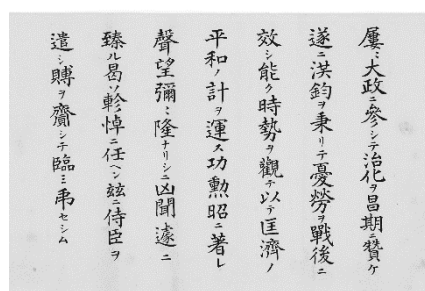 屢〻大政ニ參シテ治化ヲ昌期ニ贊ケ
遂ニ洪鈞ヲ秉リテ憂勞ヲ戰後ニ
效シ能ク時勢ヲ觀テ以テ匡濟ノ
平和ノ計ヲ運ス功勲昭ニ著レ
聲望彌〻隆ナリシニ凶聞遽ニ
臻ル曷ソ軫悼ニ任ヘン玆ニ侍臣ヲ
遣シ賻ヲ齎シテ臨ミ弔セシム